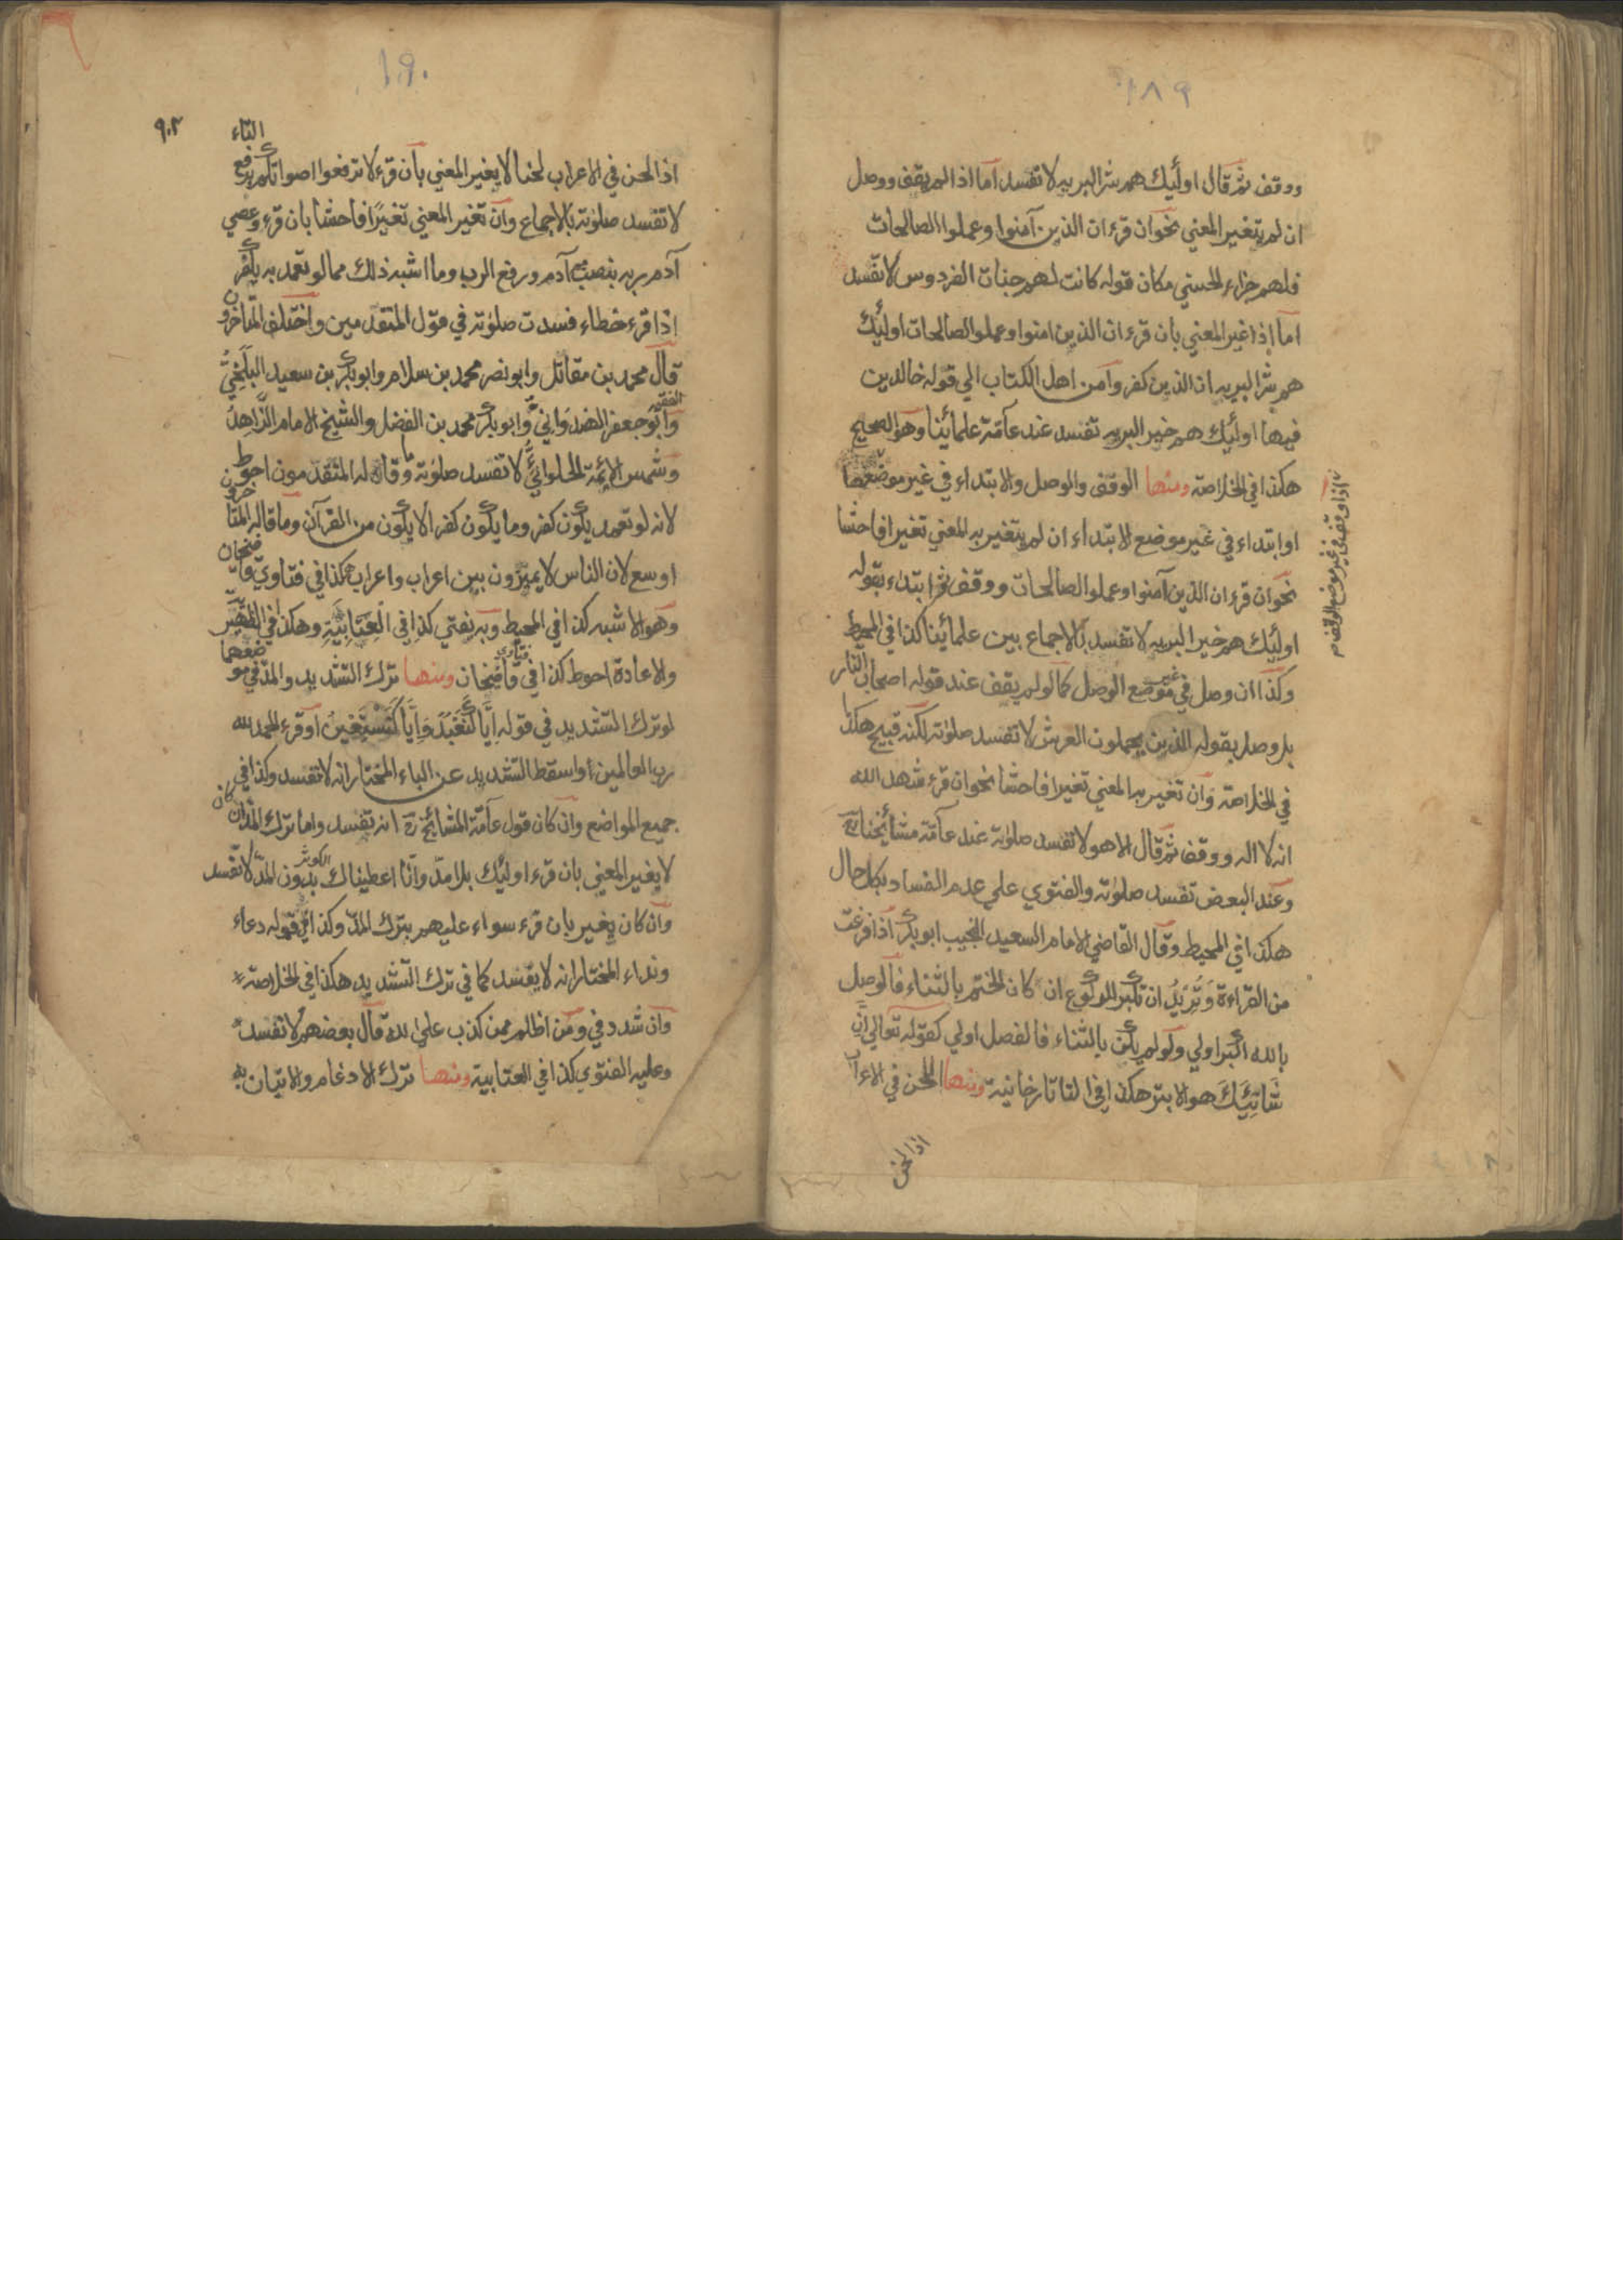 ١٨٩
ووقف ثم قال اولئك هم شر البريه لا تفسد اما اذا لم يقف ووصل
ان لم يتغير المعني نحوان قرء ان الذين آمنوا وعملوا الصالحات
فلهم جزاء الحسني مكان قوله كانت لهم جنات الفردوس لا تفسد
اما اذا غير المعني بان قرء ان الذين امنوا وعملوا الصالحات اولئك
هم شر البريه ان الذين كفروا من اهل الكتاب الي قوله خالدين
فيها اولئك هم خير البريه تفسد عند عامة علمائنا وهو الصحيح
هكذا في الخلاصة ومنها الوقف والوصل والابتداء في غير موضعها
اذا وقف في غير موضع الوقف
او ابتداء في غير موضع الابتداء ان لم يتغير به المعني تغيرا فاحشا
نحوان قرء ان الذين آمنوا وعملوا الصالحات ووقف ثم ابتداء بقوله
اولئك هم خير البريه لا تفسد بالاجماع بين علمائنا كذا في المحيط
وكذا ان وصل في غير موضع الوصل كما لو لم يقف عند قوله اصحاب النار
بل وصل بقوله الذين يحملون العرش لا تفسد صلوته لكنه قبيح هكذا
في الخلاصة وان تغير به المعني تغيرا فاحشا نحوان قرء شهد الله
انه لا اله ووقف ثم قال الا هو لا تفسد صلوته عند عامة مشائخنا
وعند البعض تفسد صلوته والفتوي علي عدم الفساد بكل حال
هكذا في المحيط وقال القاضي الامام السعيد النجيب ابو بكر اذا فرغت
من القراءة وتريد ان تكبر للركوع ان كان الختم بالثناء فالوصل
بالله اكبر اولي ولو لم يكن بالثناء فالفصل اولي كقوله تعالي ان
شانئك هو الابتر هكذا في التاتارخانية ومنها اللحن في الاعراب
اذا لحن
١٩٠
٩٠٢
اذا لحن في الاعراب لحنا لا يغير المعني بان قرء لا ترفعوا اصواتكم برفع التاء
لا تفسد صلوته بالاجماع وان تغير المعني تغيرا فاحشا بان قرء وعصي
آدم ربه بنصب آدم ورفع الرب وما اشبه ذلك مما لو تعمد به يكفر
اذا قرء خطاء فسدت صلوته في قول المتقدمين واختلف المتاخرون
قال محمد بن مقاتل وابو نصر محمد بن سلام وابو بكر بن سعيد البلخي
والفقيه ابو جعفر الهندواني وابو بكر محمد بن الفضل والشيخ الامام الزاهد
وشمس الائمة الحلوائي لا تفسد صلوته وما قاله المتقدمون احوط
لانه لو تعمد يكون كفر وما يكون كفرا لا يكون من القرآن وما قاله المتاخرون
اوسع لان الناس لا يميزون بين اعراب واعراب كذا في فتاوي قاضيخان
وهو الاشبه كذا في المحيط وبه يفتي كذا في العتابية وهكذا في الظهيرية
والاعادة احوط كذا في فتاوي قاضيخان ومنها ترك التشديد والمد في موضعهما
لو ترك التشديد في قوله اياك نعبد واياك نستعين او قرء الحمد لله
رب العالمين او اسقط التشديد عن الباء المختار انه لا تفسد وكذا في
جميع المواضع وان كان قول عامة المشائخ انه تفسد واما ترك المد ان كان
لا يغير المعني بان قرء اولئك بلا مد وانا اعطيناك الكوثر بدون المد لا تفسد
وان كان يغير بان قرء سواء عليهم بترك المد وكذا في قوله دعاء
ونداء المختار انه لا يفسد كما في ترك التشديد هكذا في الخلاصة
وان شدد في ومن اظلم ممن كذب علي الله قال بعضهم لا تفسد
وعليه الفتوي كذا في العتابية ومنها ترك الادغام والاتيان به